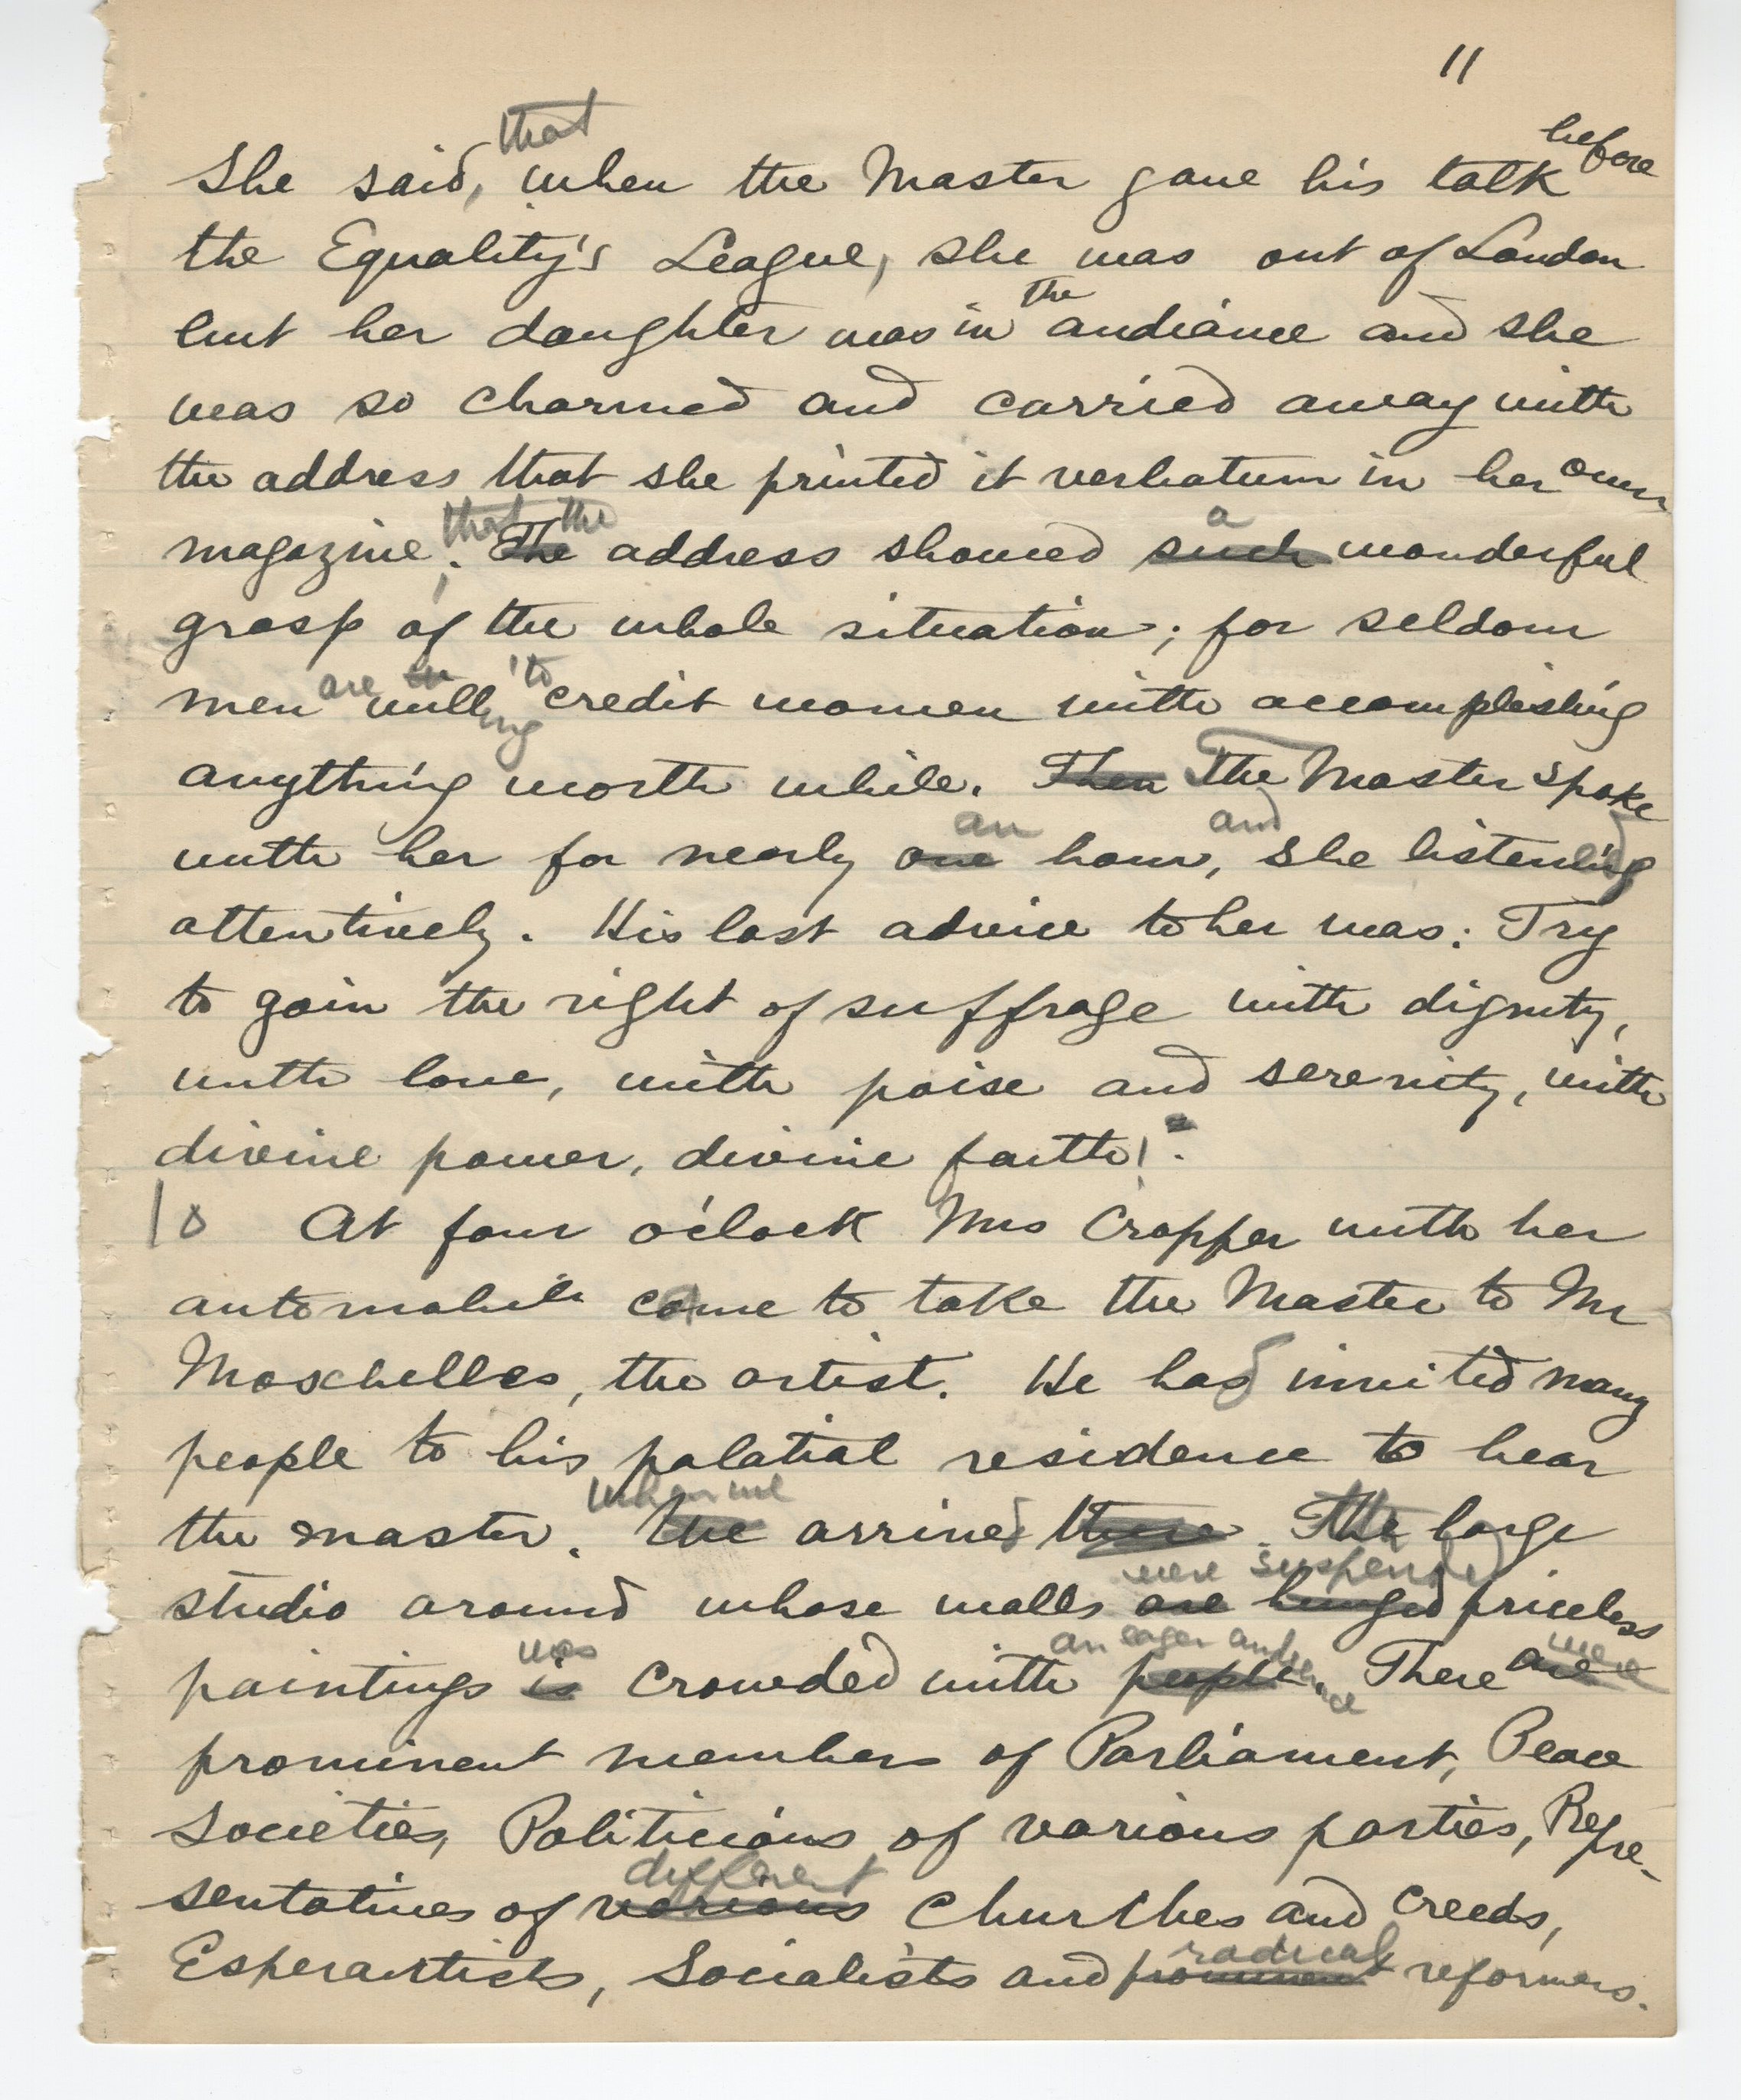 11
She said, that when the Master gave his talk before
the Equality's League, she was out of London
but her daughter was in the audiance and she
was so charmed and carried away with
the address that she printed it verbatum in her own
magazine, that the The address showed such a wonderful
grasp of the whole situation; for seldom
men are willing to credit women with accomplishing
anything worth while. Then The Master spoke
with her for nearly one an hour, and she listening
attentively. His last advice to her was: Try
to gain the right of suffrage with dignity,
with love, with poise and serenity, with
divine power, divine faith!
At four o'clock Mrs Cropper with her
automobile came to take the Master to Mr
Moschelles, the artist. He had invited many
people to his palatial residence to hear
the master. When we We arrived there. The large
studio around whose walls are hunged were suspended priceless
paintings is was crowded with people an eager audience. There are were
prominent members of Parliament, Peace
Societies, Politicians of various parties, Repre-
sentatives of various different Churches and creeds,
Esperantists, Socialists and prominent radical reformers.